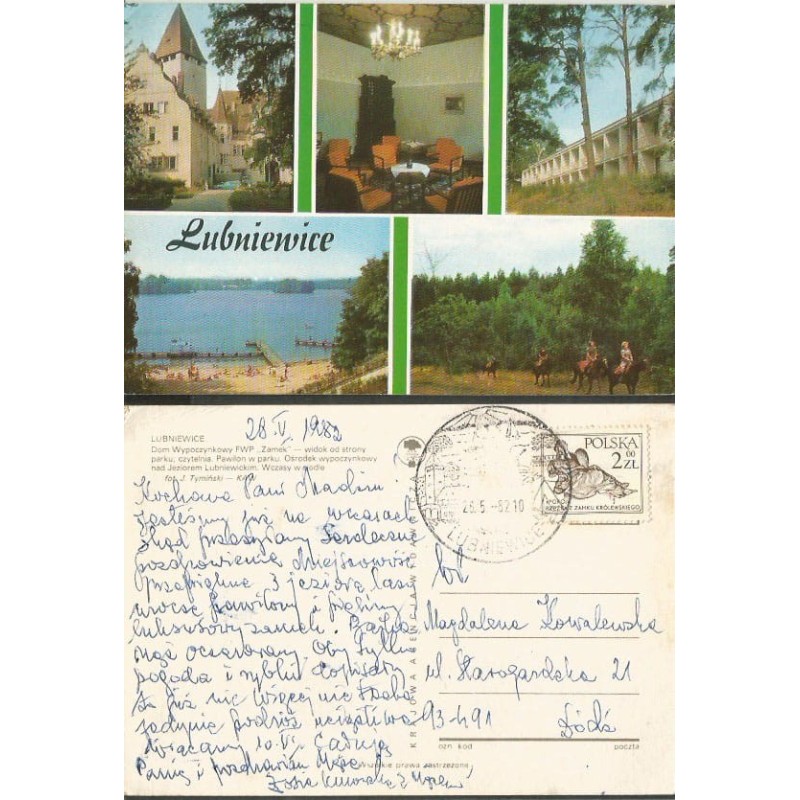 Lubniewice
28 V 1982
LUBNIEWICE
Dom Wypoczynkowy FWP „Zamek" — widok od strony
parku; czytelnia. Pawilon w parku. Ośrodek wypoczynkowy
nad Jeziorem Lubniewickim. Wczasy w siodle
fot. J. Tymiński — KAW
Kochana Pani
Jesteśmy już na wczasach
Skąd przesyłamy serdeczne
pozdrowienia. Miejscowość
przepiękna 3 jeziora, lasy
urocze pawilony i piękny
luksusowy zamek.
Mąż oczarowany. Oby tylko
pogoda i rybki dopisały
to już nic więcej nie trzeba
jedynie podróż uciążliwa
Wracamy 10.VI. Całuję
Panią i pozdrawiam
Zosia z Mężem
KRAJOWA AGENCJA WYDAWNICZA
LUBNIEWICE
28.5.-82.10
POLSKA
2 00 ZŁ
RZEŹBA Z ZAMKU KRÓLEWSKIEGO
Magdalena Kowalewska
ul. Starogardzka 21
93-491 Łódź
ozn kod poczta
Wszelkie prawa zastrzeżone